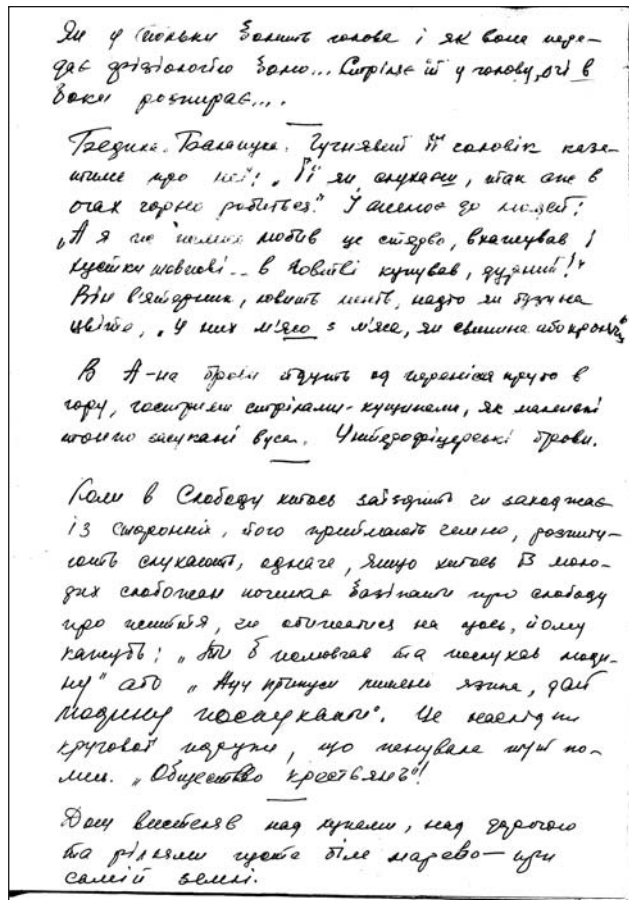 Як у Мотьки болить голова і як вона пере-
дає фізіологію болю... Стріляє їй у голову, очі в
боки розпирає....
Гугнявий її чоловік каза-
тиме про неї: „Її як слухаєш, так аж в
очах чорно робиться." І до людей:
„А я ще любив це стерво,
хустки шовкові... в Ковтві купував, дурний!"
Він в'ятерник, ловить линів, надто як бузина
цвіте. „У них м'ясо з м'яса, як свинина або кроляче"
В А-на брови йдуть од перенісся круто в
гору, гострими стрілами-кущиками, як маленькі
тонко засукані вуса. Унтерофіцерські брови.
Коли в Слободу хтось заїздить чи заходжає
із сторонніх, його приймають чемно, розпиту-
ють слухають, одначе, якщо хтось із моло-
дих слобожан починає базікати про слободу
про життя, чи обіжатись на щось, йому
кажуть: „Ти б помовчав та послухав люди-
ну" або „Ану припуси язика, дай
людину послухати". Це наслідки
кругової поруки, що існувала тут ко-
лись. „Общество крестьянъ"!
Дощ вистеляв над луками, над дорогою
та ріллями густе біле марево — при
самій землі.